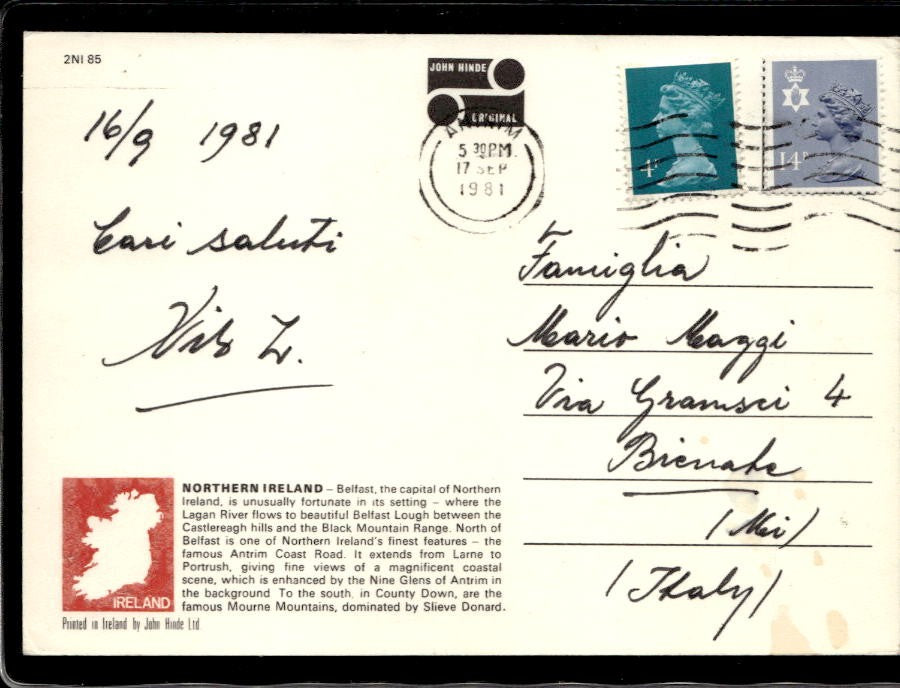 2NI 85
JOHN HINDE
ORIGINAL
ANTRIM
5 30 PM
17 SEP
1981
4P
14P
16/9 1981
Cari saluti
Vito Z.
Famiglia
Mario Maggi
Via Gramsci 4
Bienate
(Mi)
(Italy)
NORTHERN IRELAND – Belfast, the capital of Northern
Ireland, is unusually fortunate in its setting – where the
Lagan River flows to beautiful Belfast Lough between the
Castlereagh hills and the Black Mountain Range. North of
Belfast is one of Northern Ireland's finest features – the
famous Antrim Coast Road. It extends from Larne to
Portrush, giving fine views of a magnificent coastal
scene, which is enhanced by the Nine Glens of Antrim in
the background To the south, in County Down, are the
famous Mourne Mountains, dominated by Slieve Donard.
IRELAND
Printed in Ireland by John Hinde Ltd.